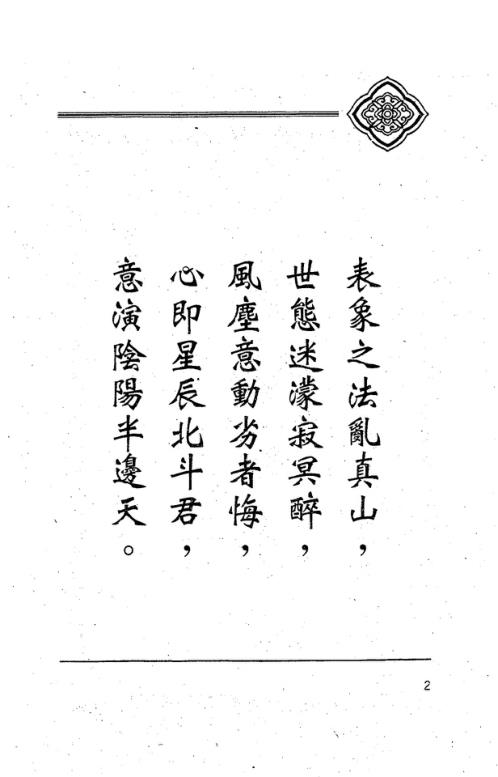 表象之法亂真山，
世態迷濛寂冥醉，
風塵意動劣者悔，
心即星辰北斗君，
意演陰陽半邊天。
2